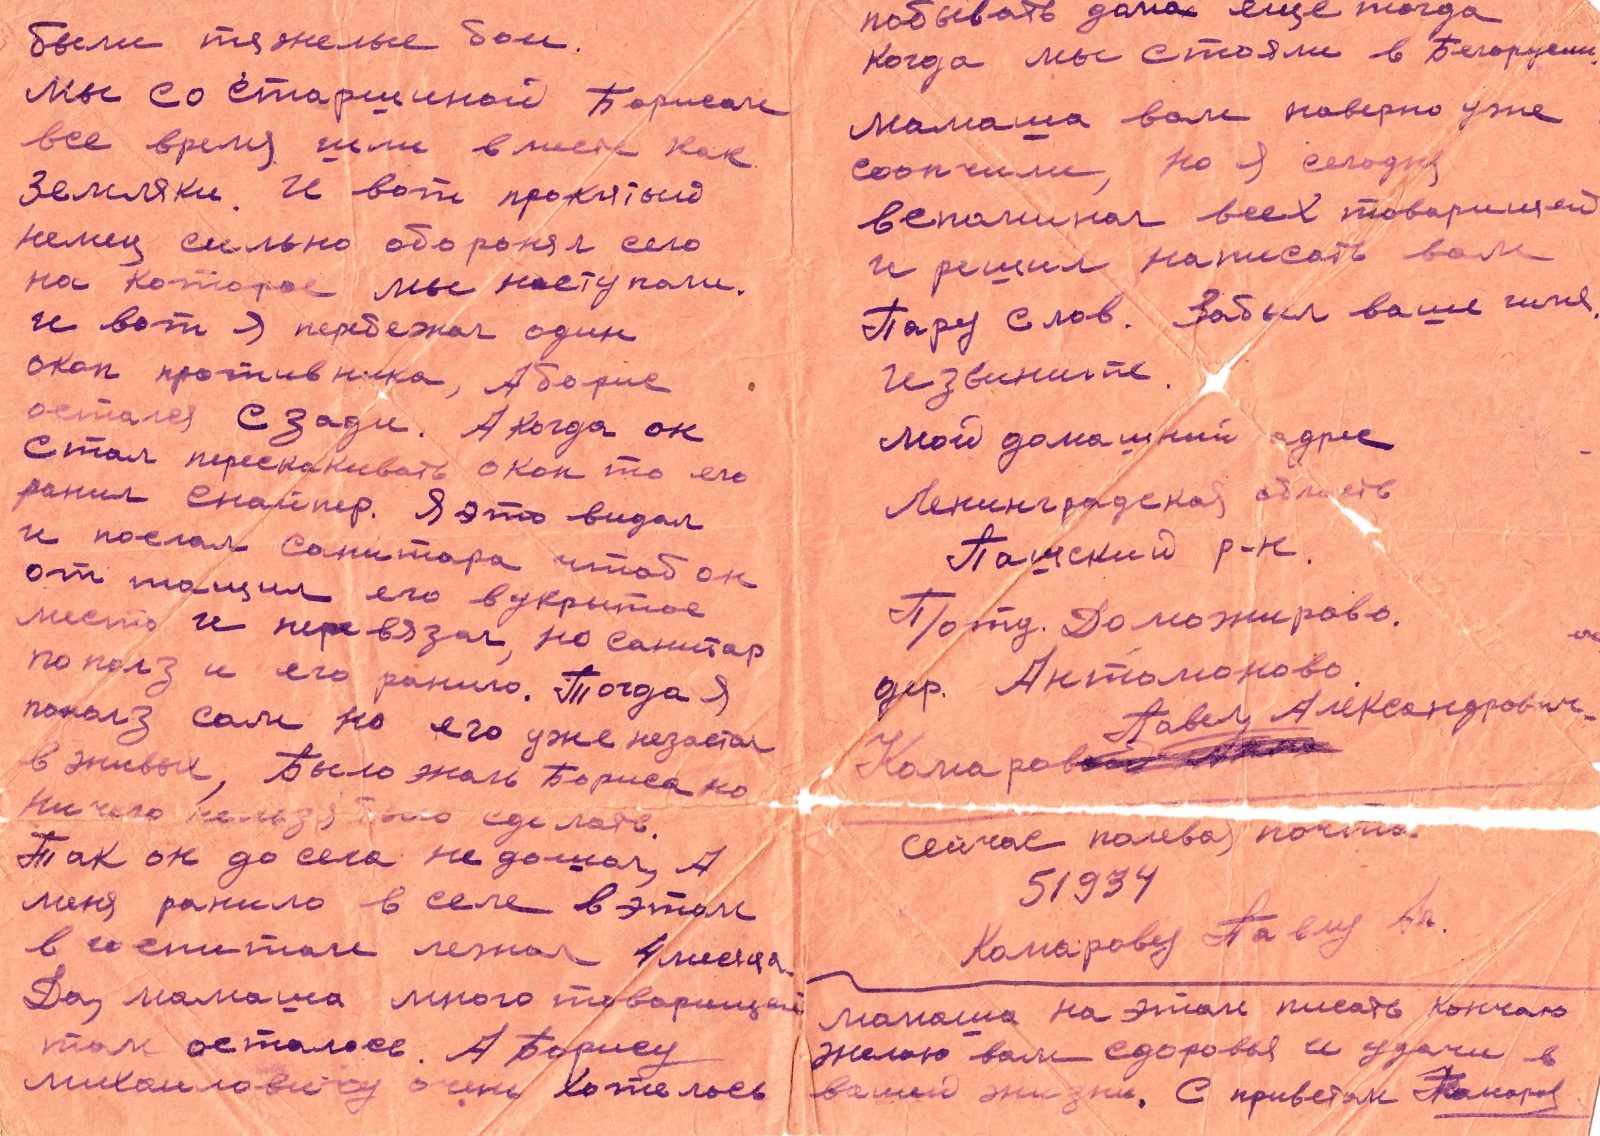 были тяжелые бои.
Мы со старшиной Борисом
все время шли вместе как
Земляки. И вот проклятый
немец сильно оборонял село
на которое мы наступали.
И вот я перебежал один
окоп противника, А борис
остался сзади. А когда он
стал перескакивать окоп то его
ранил снайпер. Я это видал
и послал санитара чтоб он
оттащил его в укрытое
место и перевязал, но санитар
пополз и его ранило. Тогда я
пополз сам но его уже незастал
в живых, Было жаль Бориса но
ничего нельзя было сделать.
Так он до села не дошол, А
меня ранило в селе в этом
в госпитале лежал 4 месяца.
Да, мамаша много товарищей
там осталось. А Борису
михаиловичу очень хотелось
побывать дома еще тогда
когда мы стояли в Белорусии.
мамаша вам наверно уже
соопчили, но я сегодня
вспоминал всех товарищей
и решил написать вам
Пару слов. Забыл ваше имя,
Извините.
мой домашний адрес
Ленинградская область
Пашский р-н.
П/отд. Доможирово.
дер. Антомоново.
Павел Александрович
Комаров
сейчас полевая почта
51934
Комарову Павлу Ал.
мамаша на этом писать кончаю
желаю вам сдоровья и удачи в
вашей жизни. С приветом Комаров